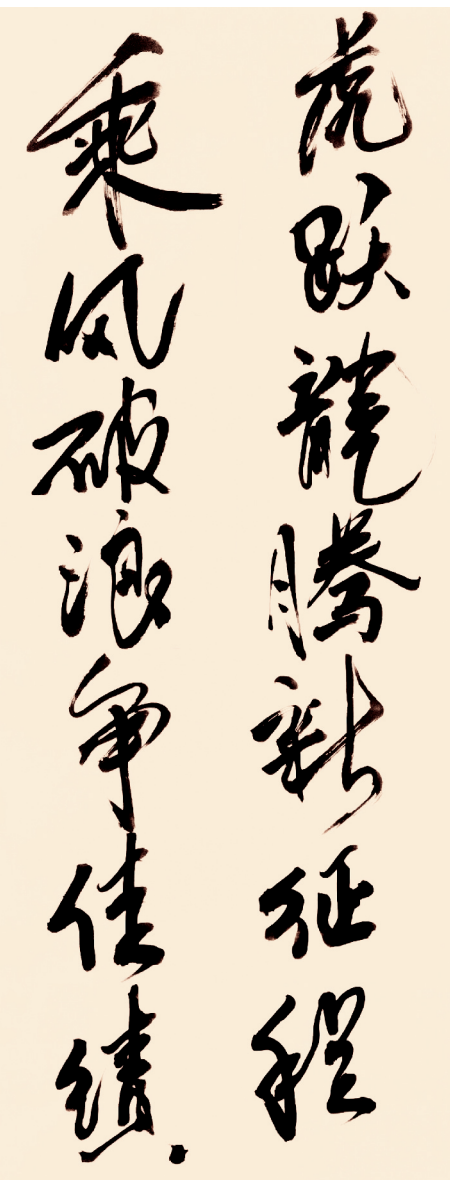 虎跃龍腾新征程
乘风破浪争佳绩